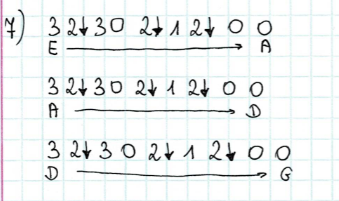 7) 3 2↓ 3 0 2↓ 1 2↓ 0 0
E → A
3 2↓ 3 0 2↓ 1 2↓ 0 0
A → D
3 2↓ 3 0 2↓ 1 2↓ 0 0
D → G